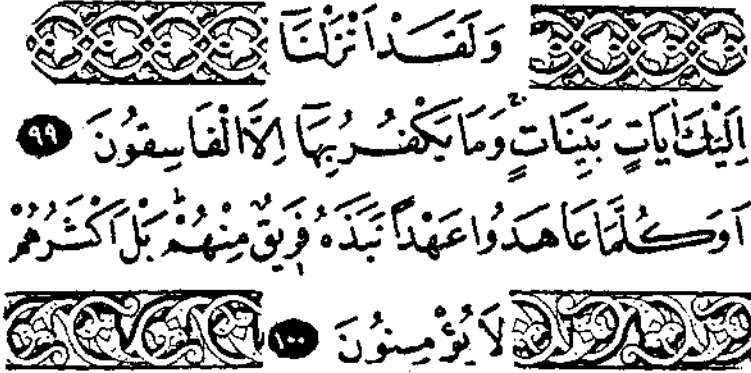 وَلَقَدْ اَنْزَلْنَٓا
اِلَيْكَ اٰيَاتٍ بَيِّنَاتٍۚ وَمَا يَكْفُرُ بِهَٓا اِلَّا الْفَاسِقُونَ ٩٩
اَوَكُلَّمَا عَاهَدُوا عَهْداً نَبَذَهُ فَرٖيقٌ مِنْهُمْؕ بَلْ اَكْثَرُهُمْ
لَا يُؤْمِنُونَ ١٠٠